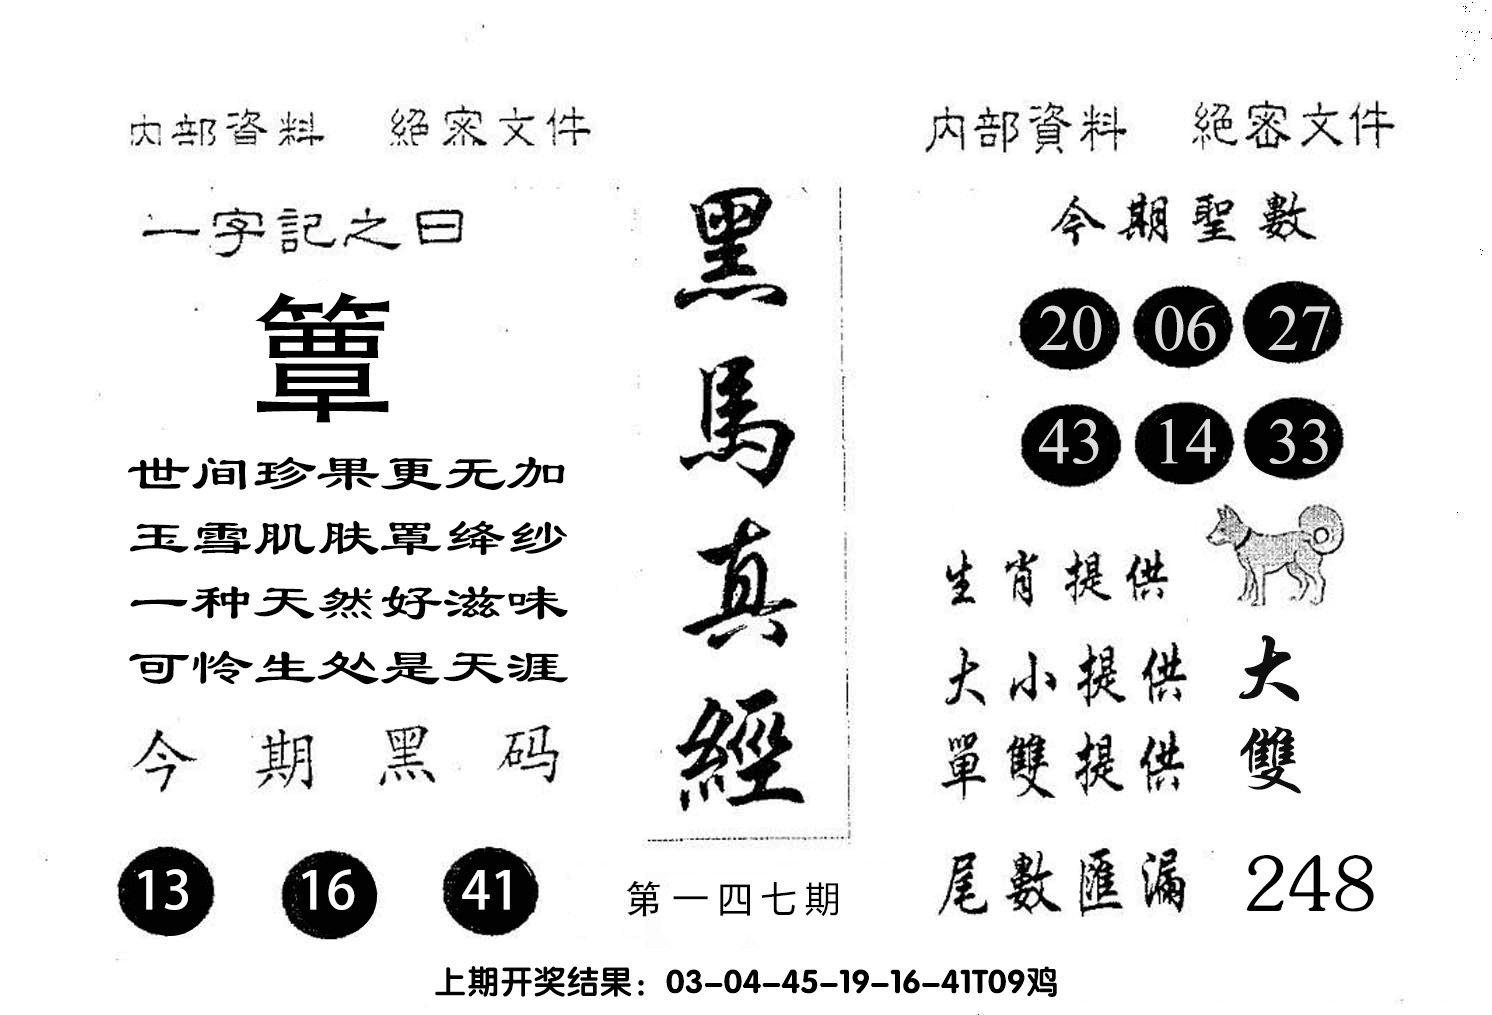 内部資料 絕密文件
一字記之曰
簟
世间珍果更无加
玉雪肌肤罩绛纱
一种天然好滋味
可怜生处是天涯
今期黑码
13 16 41
黑馬真經
第一四七期
内部資料 絕密文件
今期聖數
20 06 27
43 14 33
生肖提供
大小提供 大
單雙提供 雙
尾數匯漏 248
上期开奖结果：03-04-45-19-16-41T09鸡